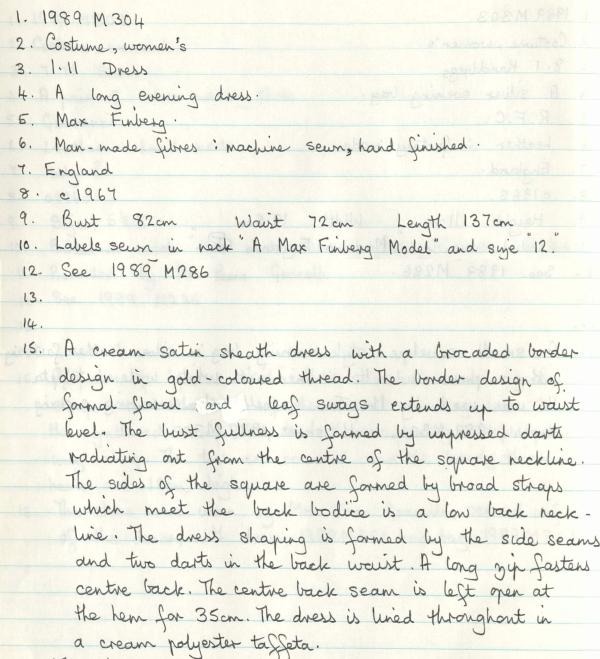 1. 1989 M304
2. Costume, women's
3. 1.11 Dress
4. A long evening dress.
5. Max Finberg.
6. Man-made fibres : machine sewn, hand finished.
7. England
8. c 1967
9. Bust 82cm Waist 72cm Length 137cm
10. Labels sewn in neck "A Max Finberg Model" and size "12."
12. See 1989 M286
13.
14.
15. A cream satin sheath dress with a brocaded border
design in gold-coloured thread. The border design of
formal floral and leaf swags extends up to waist
level. The bust fullness is formed by unpressed darts
radiating out from the centre of the square neckline.
The sides of the square are formed by broad straps
which meet the back bodice is a low back neck-
line. The dress shaping is formed by the side seams
and two darts in the back waist. A long zip fastens
centre back. The centre back seam is left open at
the hem for 35cm. The dress is lined throughout in
a cream polyester taffeta.